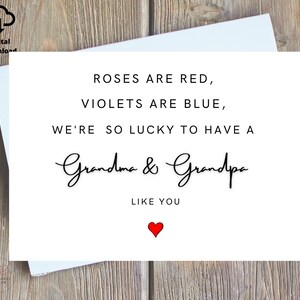 ROSES ARE RED,
VIOLETS ARE BLUE,
WE'RE SO LUCKY TO HAVE A
Grandma & Grandpa
LIKE YOU